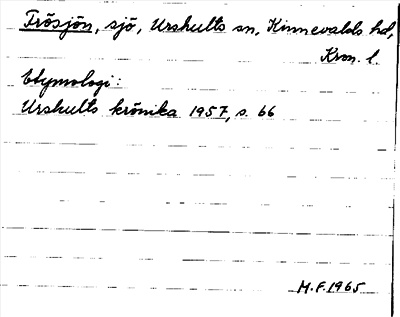 Frösjön, sjö, Urshults sn, Kinnevalds hd,
Kron. l.
Etymologi:
Urshults krönika 1957, s. 66
M.F. 1965